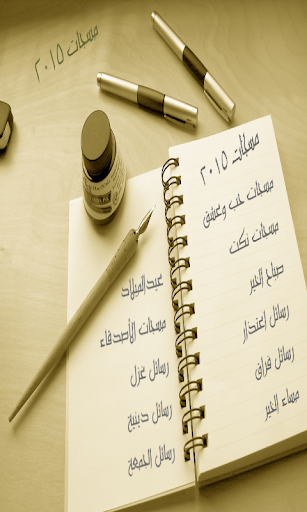 مسجات ٢٠١٥
مسجات ٢٠١٥
مسجات حب وعشق
مسجات نكت
صباح الخير
رسائل إعتذار
رسائل فراق
مساء الخير
عيدالميلاد
مسجات الأصدقاء
رسائل غزل
رسائل دينية
رسائل الجمعة